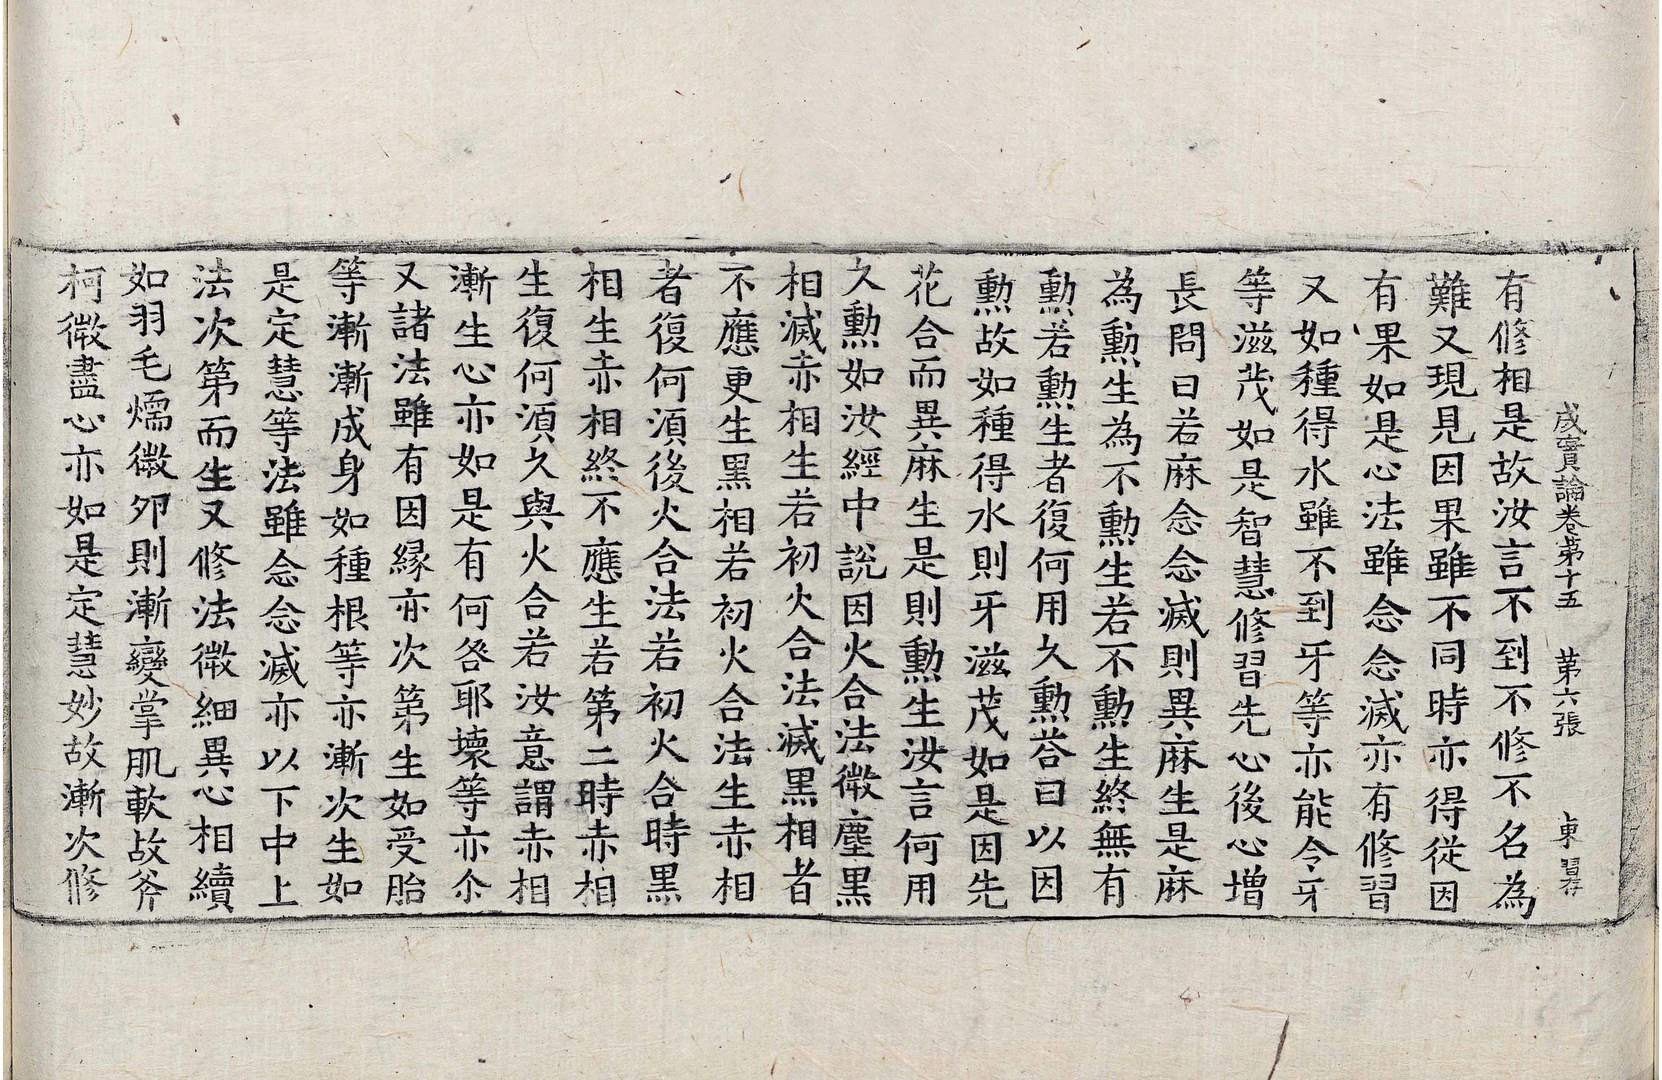 成實論卷第十五　第六張　東　習存
有修相是故汝言不到不修不名為
難又現見因果雖不同時亦得從因
有果如是心法雖念念滅亦有修習
又如種得水雖不到牙等亦能令牙
等滋茂如是智慧修習先心後心增
長問曰若麻念念滅則異麻生是麻
為勳生為不勳生若不勳生終無有
勳若勳生者復何用久勳荅曰以因
勳故如種得水則牙滋茂如是因先
花合而異麻生是則勳生汝言何用
久勳如汝經中說因火合法微塵黑
相滅赤相生若初火合法滅黑相者
不應更生黑相若初火合法生赤相
者復何湏後火合法若初火合時黑
相生赤相終不應生若第二時赤相
生復何湏久與火合若汝意謂赤相
漸生心亦如是有何咎耶壞等亦尒
又諸法雖有因緣亦次第生如受胎
等漸漸成身如種根等亦漸次生如
是定慧等法雖念念滅亦以下中上
法次第而生又修法微細異心相續
如羽毛煗微夘則漸變掌肌軟故斧
柯微盡心亦如是定慧妙故漸次修